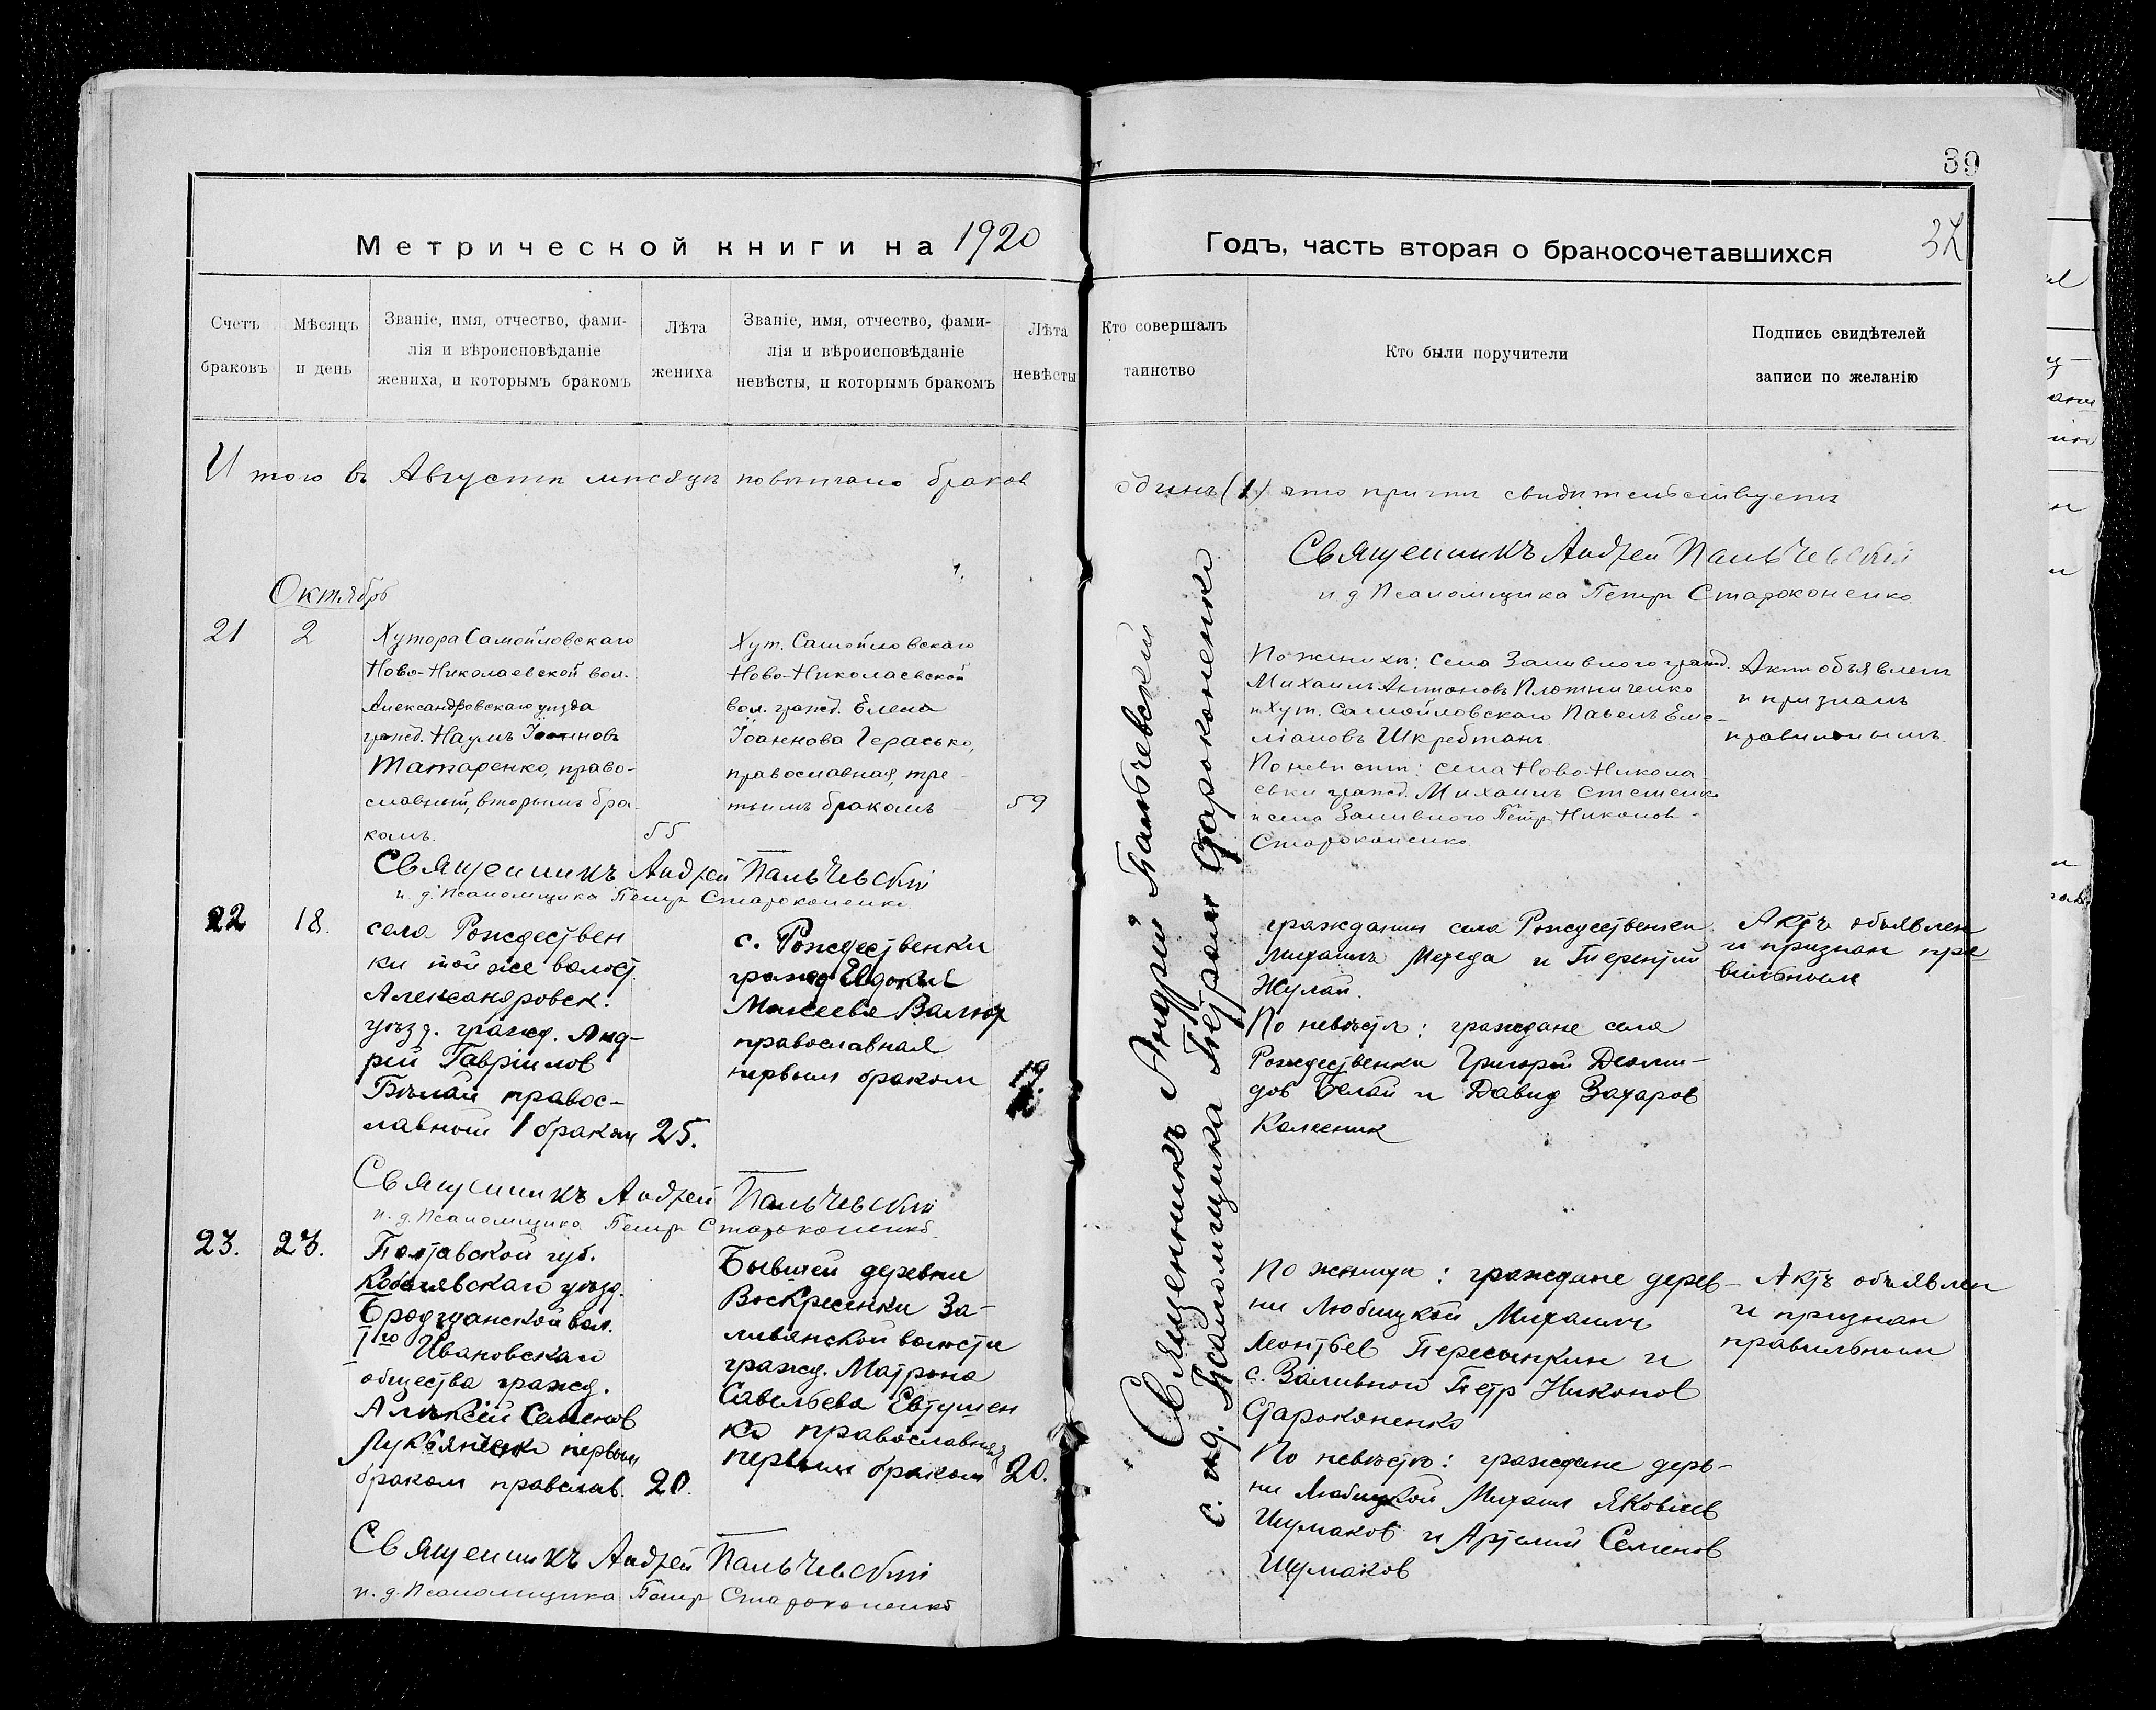 39
Метрической книги на 1920
Годъ, часть вторая о бракосочетавшихся
37
Счетъ браковъ
Мѣсяцъ и день
Званіе, имя, отчество, фами-
лія и вѣроисповѣданіе
жениха, и которымъ бракомъ
Лѣта жениха
Званіе, имя, отчество, фами-
лія и вѣроисповѣданіе
невѣсты, и которымъ бракомъ
Лѣта невѣсты
Кто совершалъ таинство
Кто были поручители
Подпись свидѣтелей
записи по желанію
Итого въ Августѣ мѣсяцѣ повѣнчано браков один (1) что причтъ свидѣтельствуетъ
Священникъ Андрей Пальчевскій
и. д. Псаломщика Петр Староконенко
Октябрь
21
2
Хутора Самойловскаго
Ново-Николаевской вол.
Александровскаго уѣзда
гражд. Наумъ Іоанновъ
Татаренко, право-
славный, вторымъ бра-
комъ.
55
Хут. Самойловскаго
Ново-Николаевской
вол. гражд. Елена
Іоаннова Герасько,
православная, тре-
тьимъ бракомъ
59
По женихѣ: села Заливного гражд.
Михаилъ Антоновъ Плотниченко
и хут. Самойловскаго Павелъ Еме-
ліановъ Шкребтанъ.
По невѣстѣ: села Ново-Никола-
евки гражд. Михаилъ Стешенко
и села Заливного Петр Никонов
Староконенко.
Акт объявлен
и признанъ
правильнымъ.
Священникъ Андрей Пальчевскій
и. д. Псаломщика Петр Староконенко
22
18.
села Рождествен
ки той же волост.
Александровск.
уѣзд. гражд. Анд-
рей Гавріилов
Бѣлай правос-
лавный 1 браком
25.
с. Рождественки
гражд Евдокия
Моисеевa
православная
первым браком
19
граждани села Рождественки
Михаилъ Мехеда и Терентий
Жулай.
По невѣстѣ: граждане села
Рождественки Григорий Диоми-
дов Белай и Давид Захаров
Колесник
Актъ объявлен
и признан пра
вильным
Священникъ Андрей Пальчевскій
и. д. Псаломщика Петр Староконенко.
23.
23.
Полтавской губ.
Кобелякскаго уѣзд.
вол.
1го Ивановскаго
общества гражд.
Алексѣй Семенов
Лукьяненко первым
браком правслав.
20.
Бывшей деревни
Воскресенки За-
ливянской волости
гражд. Матрона
Савельева Евтушен
ко православная
первым браком
20.
По женихѣ: граждане дерев-
ни Любицкой Михаилъ
Леонтьев и
с. Заливной Петр Никонов
Староконенко
По невѣстѣ: граждане дерв-
ни Любицкой Михаил Яковлев
Шумаков и Артемий Семенов
Шумаков
Актъ объявлен
и признан
правильным
Священникъ Андрей Пальчевскій
и. д. Псаломщика Петр Староконенко
Священникъ Андрей Пальчевский
с. и.д. Псаломщика Петром Староконенко